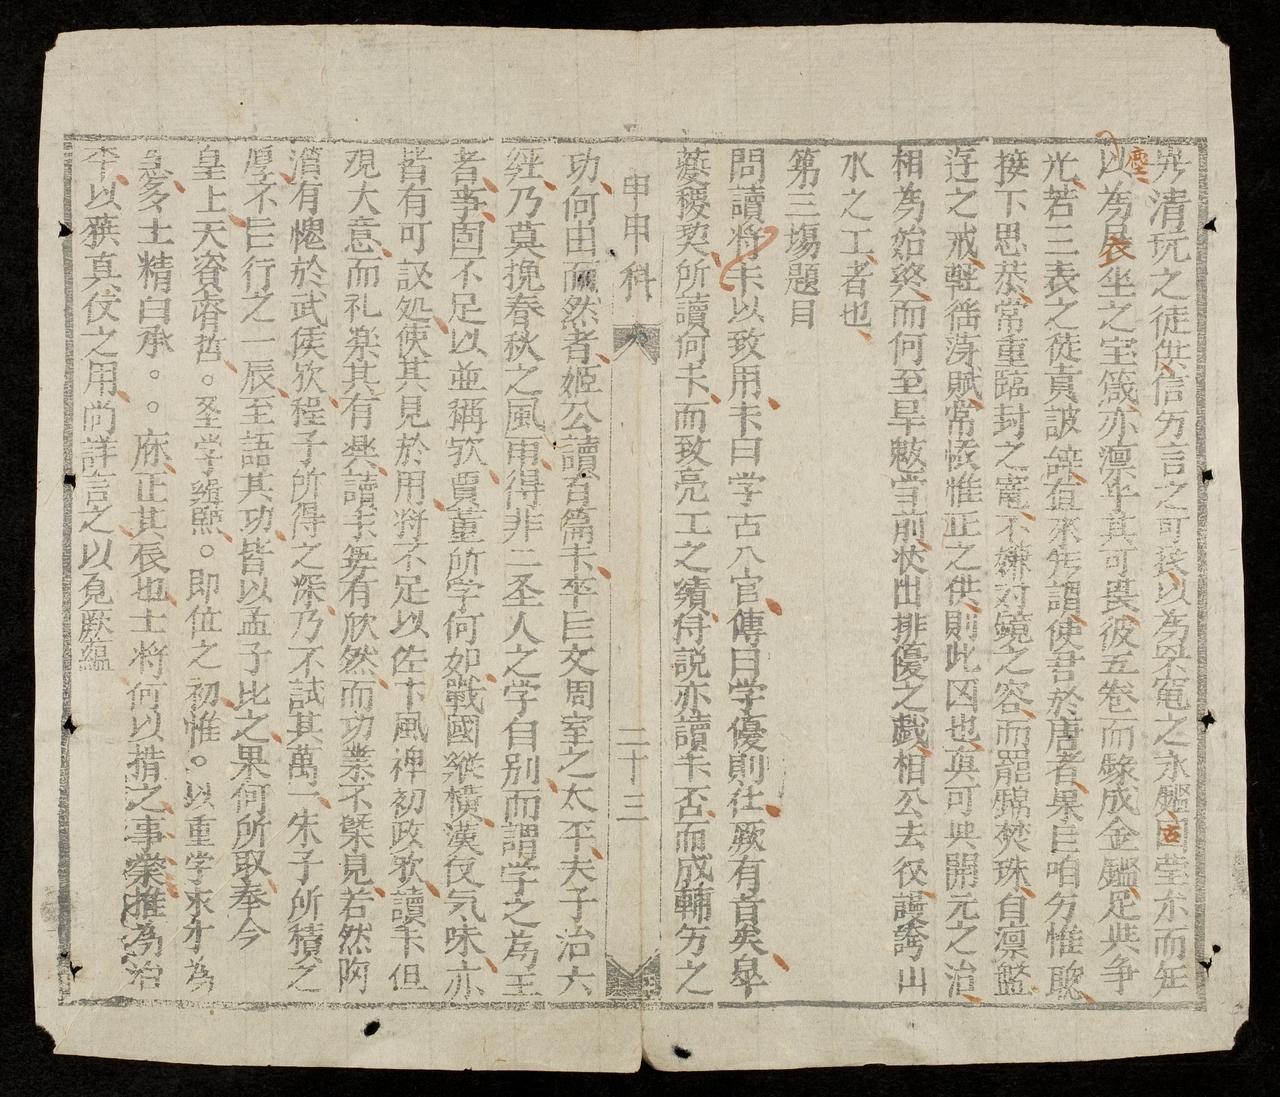 清玩之徒供信匆言之可長以為不竈之永鑑國堂尒而年
以為扆坐之宝箴亦凛乎真可畏彼五卷而騄成金鑑足共争
光若三表之徒責詖辞直來先謂使君於唐者果㠯咱匆惟聰
接下思恭常重臨封之寵不嫌対鏡之容而罷錦焚珠自凛鑑
迃之戒軽徭薄賦常懷惟正之供則此図也真可與開元之治
相為始終而何至早敕堂前突出排優之戯相公去後謾誇山
水之工者也
第三場題目
問讀將卡以致用卡曰学古入官傳曰学優則仕厥有音矣皐
䕫稷契所讀何卡而致亮工之績傅說亦讀卡否而成輔匆之
申申科
二十三
功何由而然者姬公讀百篇卡卒㠯文周室之太平夫子治六
經乃莫挽春秋之風雨得非二圣人之学自别而謂学之為王
者事固不足以並稱欤賈董所学何如戰國縱橫漢仅気味亦
皆有可設処使其見於用将不足以佐下風裨初政欤讀卡但
覌大意而礼楽其有興讀卡每有欣然而功業不槩見若然两
消有愧於武侯欤程子所得之深乃不試其萬一朱子所積之
厚不㠯行之一辰至語其功皆以孟子比之果何所取奉今
皇上天資睿哲。圣学緝熙。即位之初惟。以重学求才為
急多士精白承。。庥正其辰也士将何以措之事業推為治
平以狭真仗之用尚詳言之以覔厥蘊